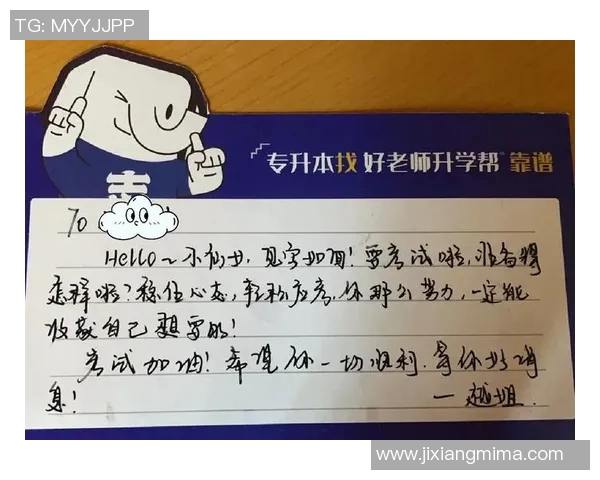 TG: MYYJJPP
专升本找 好老师升学帮 靠谱
志
To
Hello～小仙女，见字如面！要考试啦，准备得
怎样啦？稳住心态，轻松应考，你那么努力，一定能
收获自己想要的！
考试加油！希望你一切顺利，等你好消
息！
一越姐.
www.jixiangmima.com